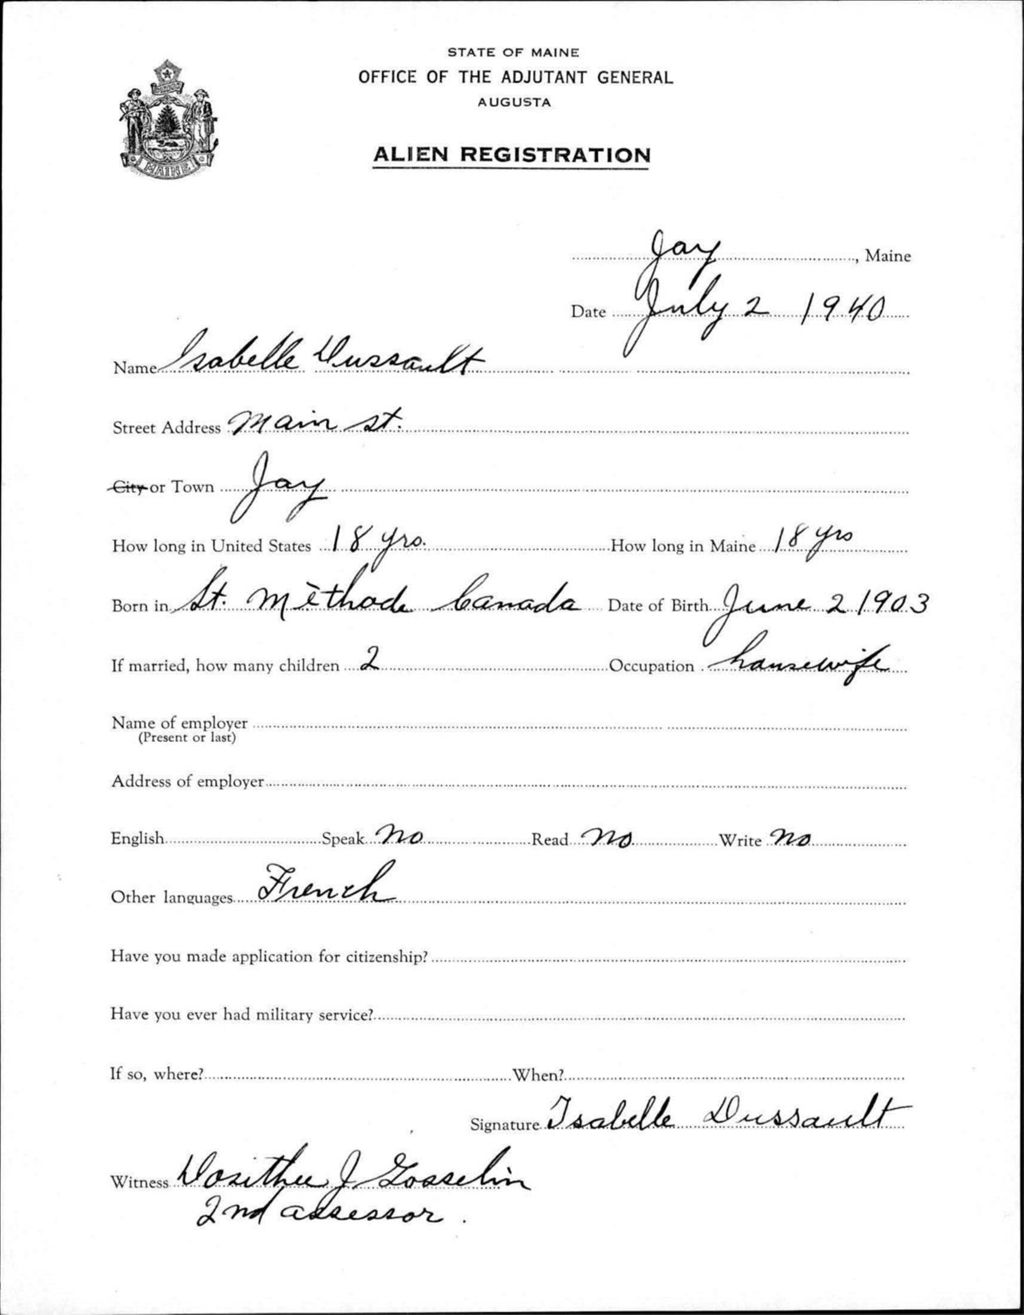 STATE OF MAINE
OFFICE OF THE ADJUTANT GENERAL
AUGUSTA
ALIEN REGISTRATION
MAINE
Jay, Maine
Date July 2 1940
Name Isabelle Dussault
Street Address Main St.
City or Town Jay
How long in United States 18 yrs. How long in Maine 18 yrs
Born in St. Mèthode Canada Date of Birth June 2 1903
If married, how many children 2 Occupation housewife
Name of employer
(Present or last)
Address of employer
English Speak No Read No Write No
Other languages French
Have you made application for citizenship?
Have you ever had military service?
If so, where? When?
Signature Isabelle Dussault
Witness Dosithee J Gosselin
2nd assessor.